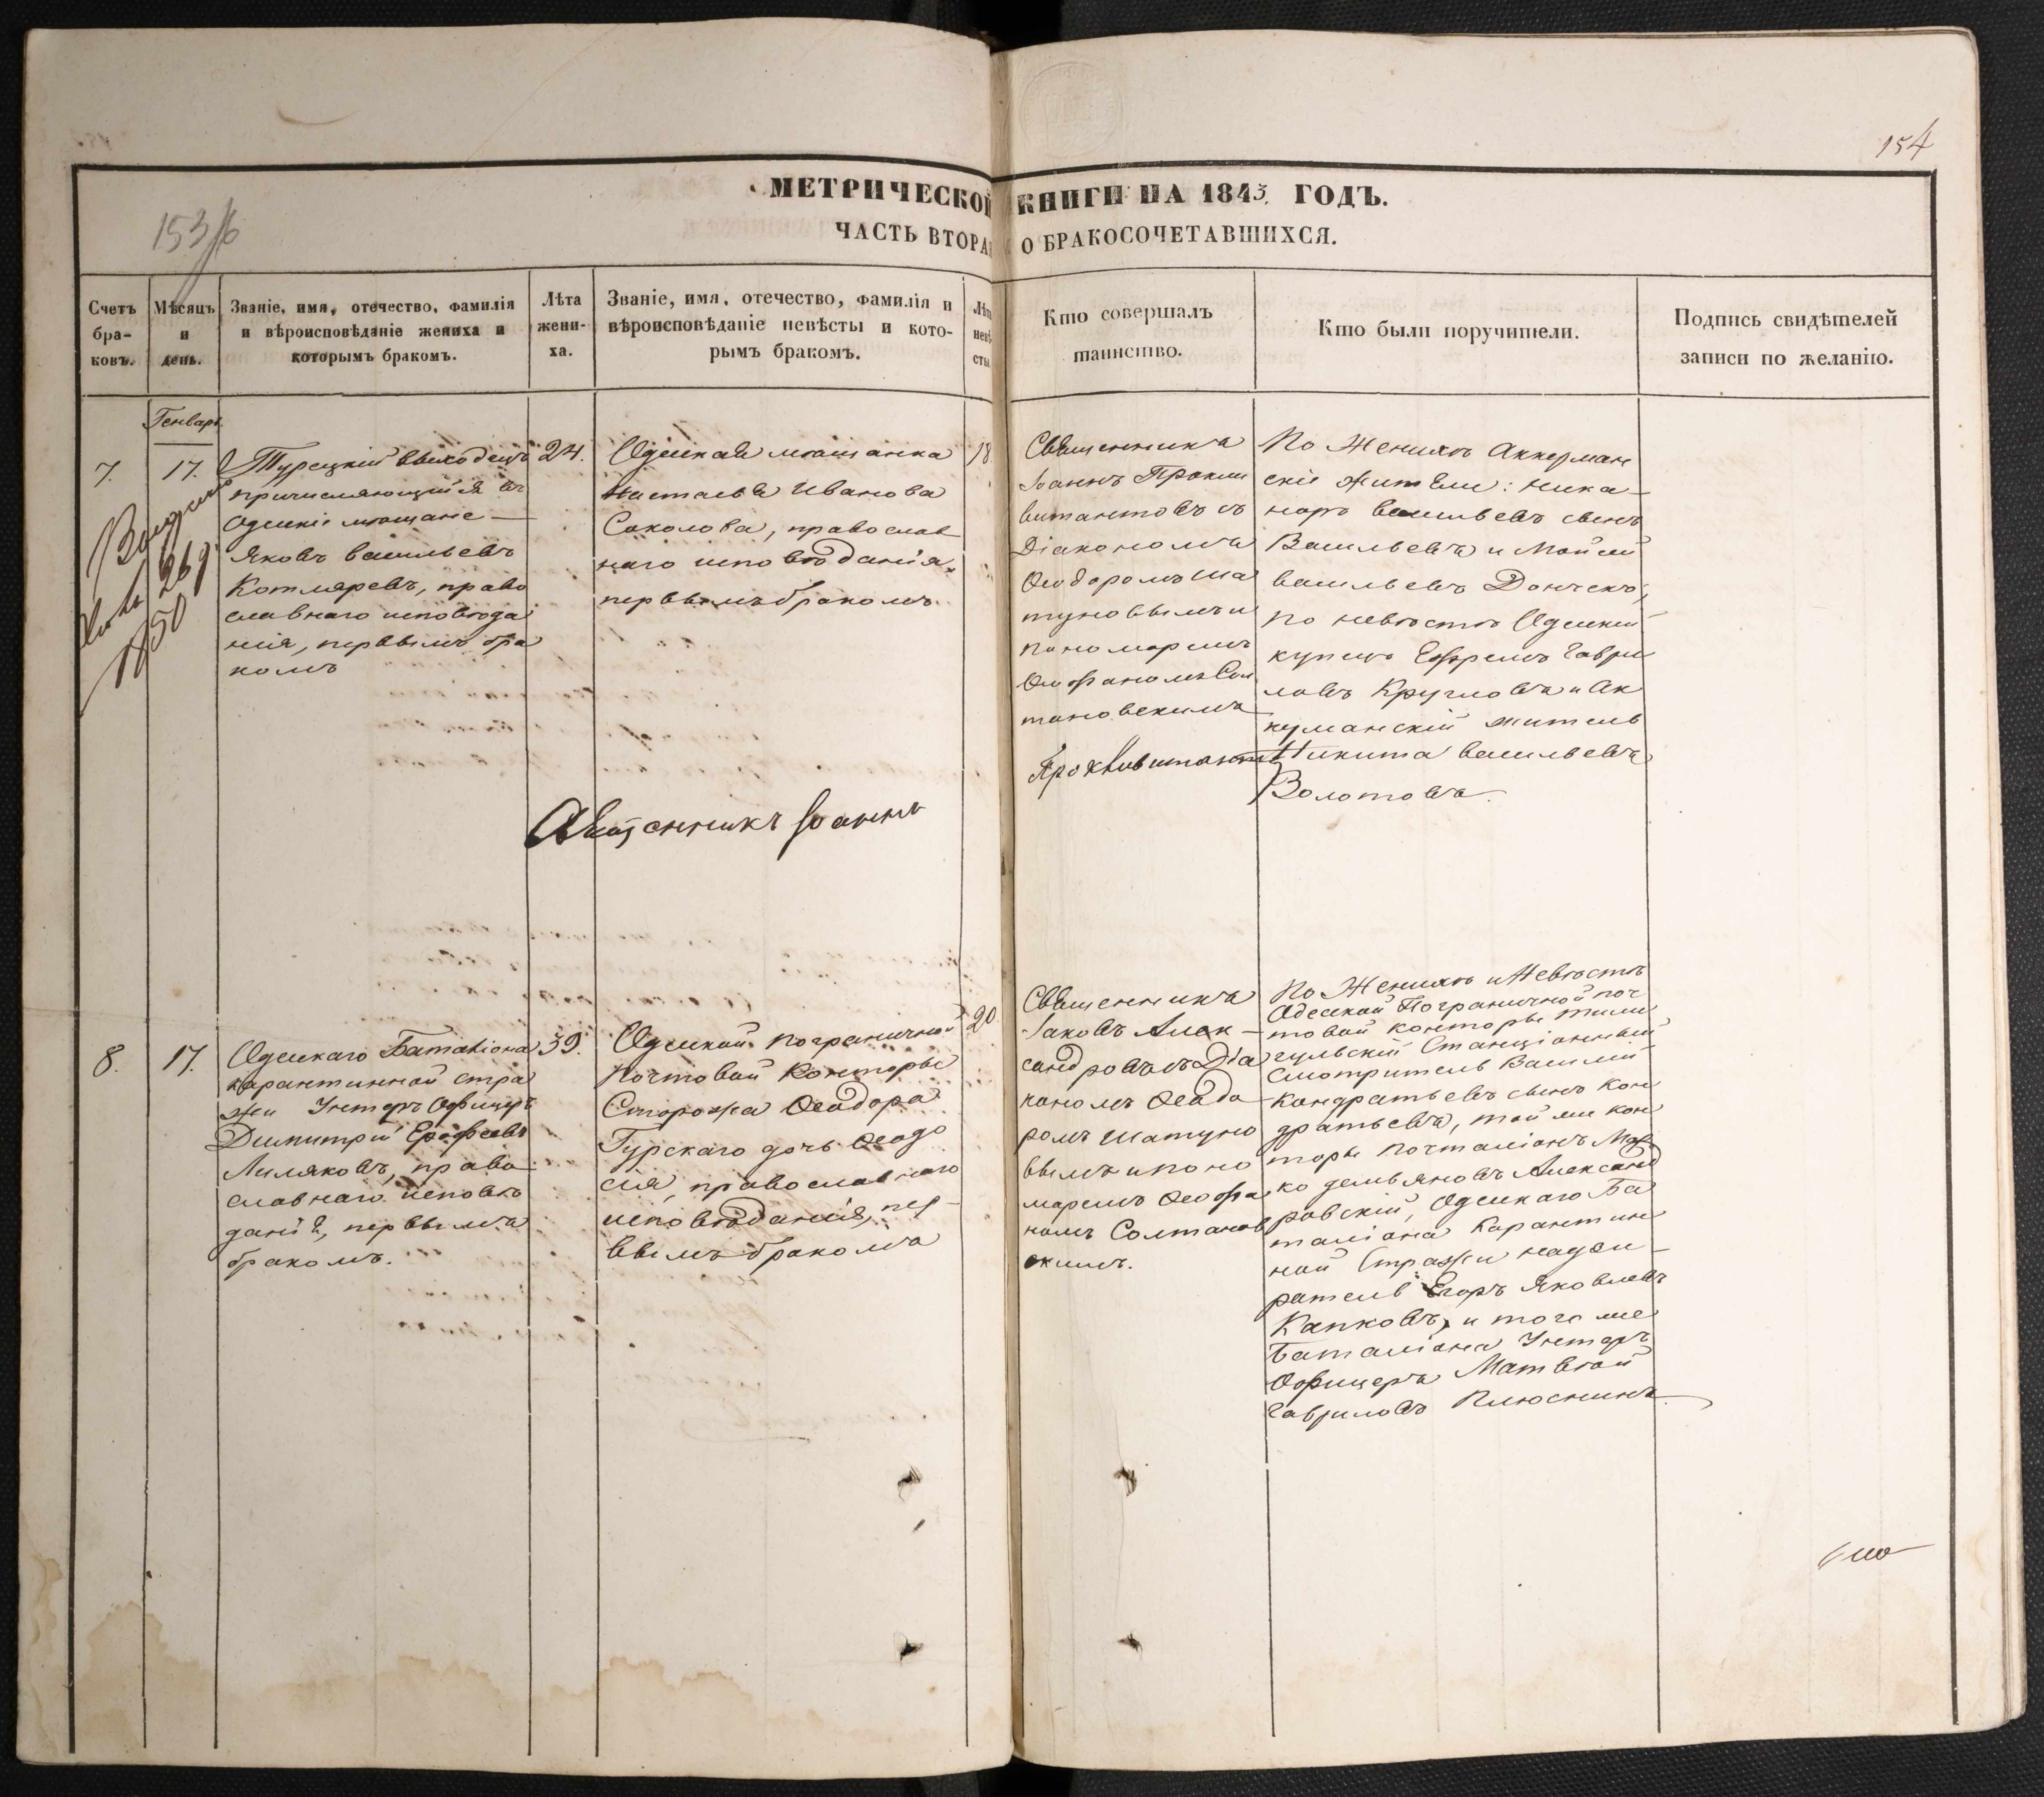 154
153/6
МЕТРИЧЕСКОЙ КНИГИ НА 1843 ГОДЪ.
ЧАСТЬ ВТОРАЯ О БРАКОСОЧЕТАВШИХСЯ.
Счетъ бра-
ковъ.
Мѣсяцъ
и
день.
Званіе, имя, отечество, фамилія
и вѣроисповѣданіе жениха и
которымъ бракомъ.
Лѣта
жени-
ха.
Званіе, имя, отечество, фамилія и
вѣроисповѣданіе невѣсты и кото-
рымъ бракомъ.
Лѣта
невѣ-
сты.
Кто совершалъ
таинство.
Кто были поручители.
Подпись свидѣтелей
записи по желанію.
Генварь.
7.
17.
Турецкій выходецъ
причисляющійся въ
Одескіе мещане
Яковъ Васильевъ
Котляревъ, право
славнаго исповѣда
нія, первымъ бра
комъ
24.
Одеская мѣщанка
Настасья Иванова
Соколова, православ
наго исповѣданія,
первымъ бракомъ
18
Священникъ
Іоаннъ Прокши
витантовъ съ
Діакономъ
Ѳеодоромъ Ша
туновымъ и
пономаремъ
Ѳеофаномъ Сол
тановскимъ
По Женихѣ Аккерман
скіе жители: Ника
норъ Васильевъ сынъ
Васильевъ и Мойсей
Васильевъ Донченко,
по невѣстѣ Одескій
купецъ Ефремъ Гаври
ловъ Кругловъ и Ак
керманскій житель
Никита Васильевъ
Волотовъ.
269
1850
Священникъ Іоаннъ
8.
17.
Одескаго Баталіона
карантинной стра
жи Унтеръ Офицеръ
Димитрій Ерофеевъ
Лиляковъ, право
славнаго исповѣ
данія, первымъ
бракомъ.
39.
Одеской пограничной
почтовой Конторы
Сторожа Ѳеодора
Гурскаго дочь Ѳеодо
сія, православнаго
исповѣданія, пер
вымъ бракомъ
20.
Священникъ
Іаковъ Алек
сандровъ съ Діа
кономъ Ѳеодо
ромъ Шатуно
вымъ и поно
маремъ Ѳеофа
номъ Солтанов
скимъ.
По Женихѣ и Невѣстѣ
Одеской Пограничной поч
товой конторы Тили
гульскій Станціонный
Смотритель Василій
Кондратьевъ сынъ Кон
дратьевъ, той же кон
торы Почталіонъ Мар
ко Демьяновъ Александ
ровскій, Одескаго Ба
таліона Карантин
ной Стражи надзи
ратель Егоръ Яковлевъ
Капковъ, и того же
Баталіона Унтеръ
Офицеръ Матвѣй
Гавриловъ Плюснинъ.